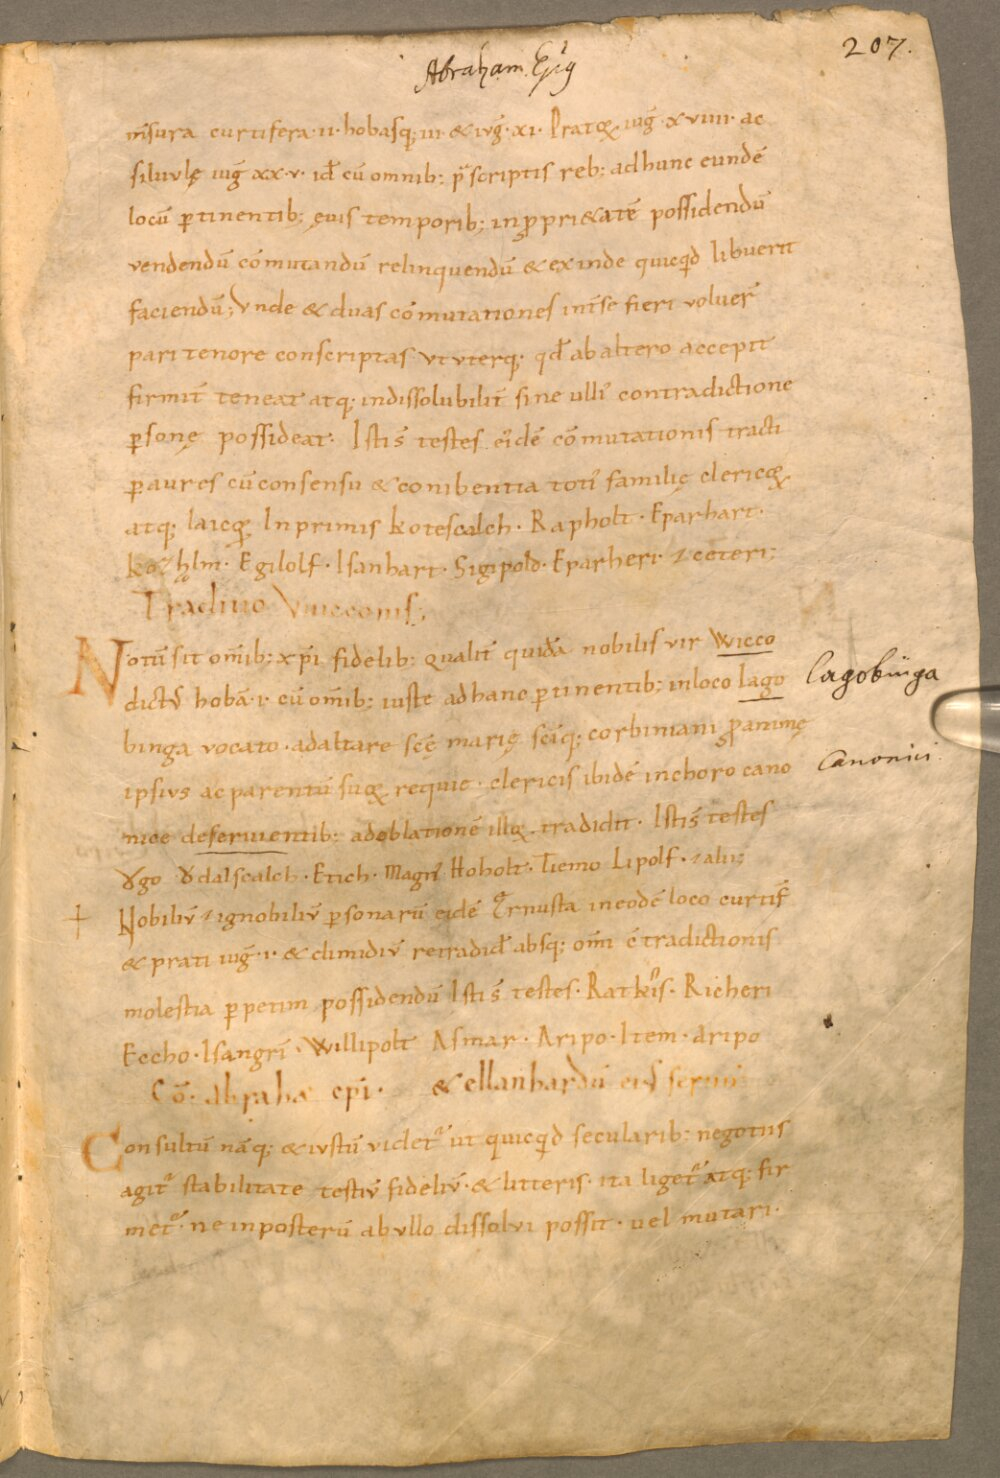 207.
Abraham Epꝰ
m̅sura curtifera · ii · hobasq; iii · & iug̅ · xi · Pratoꝝ iug̅ · xviiii · ac
siluulę iug̅ xx · v · id̅ cu̅ omnib; p̃scriptis reb; ad hunc eunde̅
locu̅ ꝑtinentib; ęuis temporib; in ꝓpri&ate̅ possidendu̅
vendendu̅ co̅mutandu̅ relinquendu̅ & exinde quicq̇d libuerit
faciendu̅; Vnde & duas co̅mutationes int̅ se fieri voluer̅
pari tenore conscriptas ut uterq; qd̅ ab altero accepit
firmit̅ teneat atq; indissolubilit̅ sine ulliꝰ contradictione
ꝑsonę possideat · Isti s̅ testes eiꝰde̅ co̅mutationis tracti
ꝑ aures cu̅ consensu & conibentia totiꝰ familię clericoꝝ
atq; laicoꝝ In primis Kotescalch · Rapholt · Eparhart ·
Egilolf · Isanhart · Sigipold · Eparheri · & ceteri;
Traditio Vuicconis;
Notu̅ sit om̅ib; xp̅i fidelib; qualit̅ quida̅ nobilis vir Wicco
dictu̅ hoba̅ · i · cu̅ om̅ib; iuste ad hanc ꝑtinentib; in loco lago
Lagobinga
binga vocato · ad altare sc̅ę marię sc̅iq; corbiniani ꝓ animę
ipsius ac parentu̅ suoꝝ requie · clericis ibide̅ in choro cano
Canonici
nice deseruientib; ad oblatione̅ illoꝝ tradidit · Isti s̅ testes
Ȣgo Ȣdalscalch · Etich · Magn̅ Hoholt · Tiemo Lipolf · & alii;
+ Nobiliu̅ & ignobiliu̅ ꝑsonaru̅ eide̅ Ernusta in eode̅ loco curtif̅
& prati iug̅ · i · & dimidiu̅ retradid̅ absq; om̅i c̅tradictionis
molestia ꝑpetim possidendu̅ Isti s̅ testes · Ratkis · Richeri
Eccho · Isangri̅ · Willipolt Asmar · Aripo · Item · Aripo
Co̅ · Abrahae epi̅ · & ellanhardu̅ eiꝰ serui
Consultu̅ na̅q; & iustu̅ videt᷑ ut quicq̇d secularib; negotiis
agit᷑ stabilitate testiu̅ fideliu̅ · & litteris · ita liget᷑ atq; fir
met᷑ · ne in posteru̅ ab ullo dissolui possit · uel mutari ·